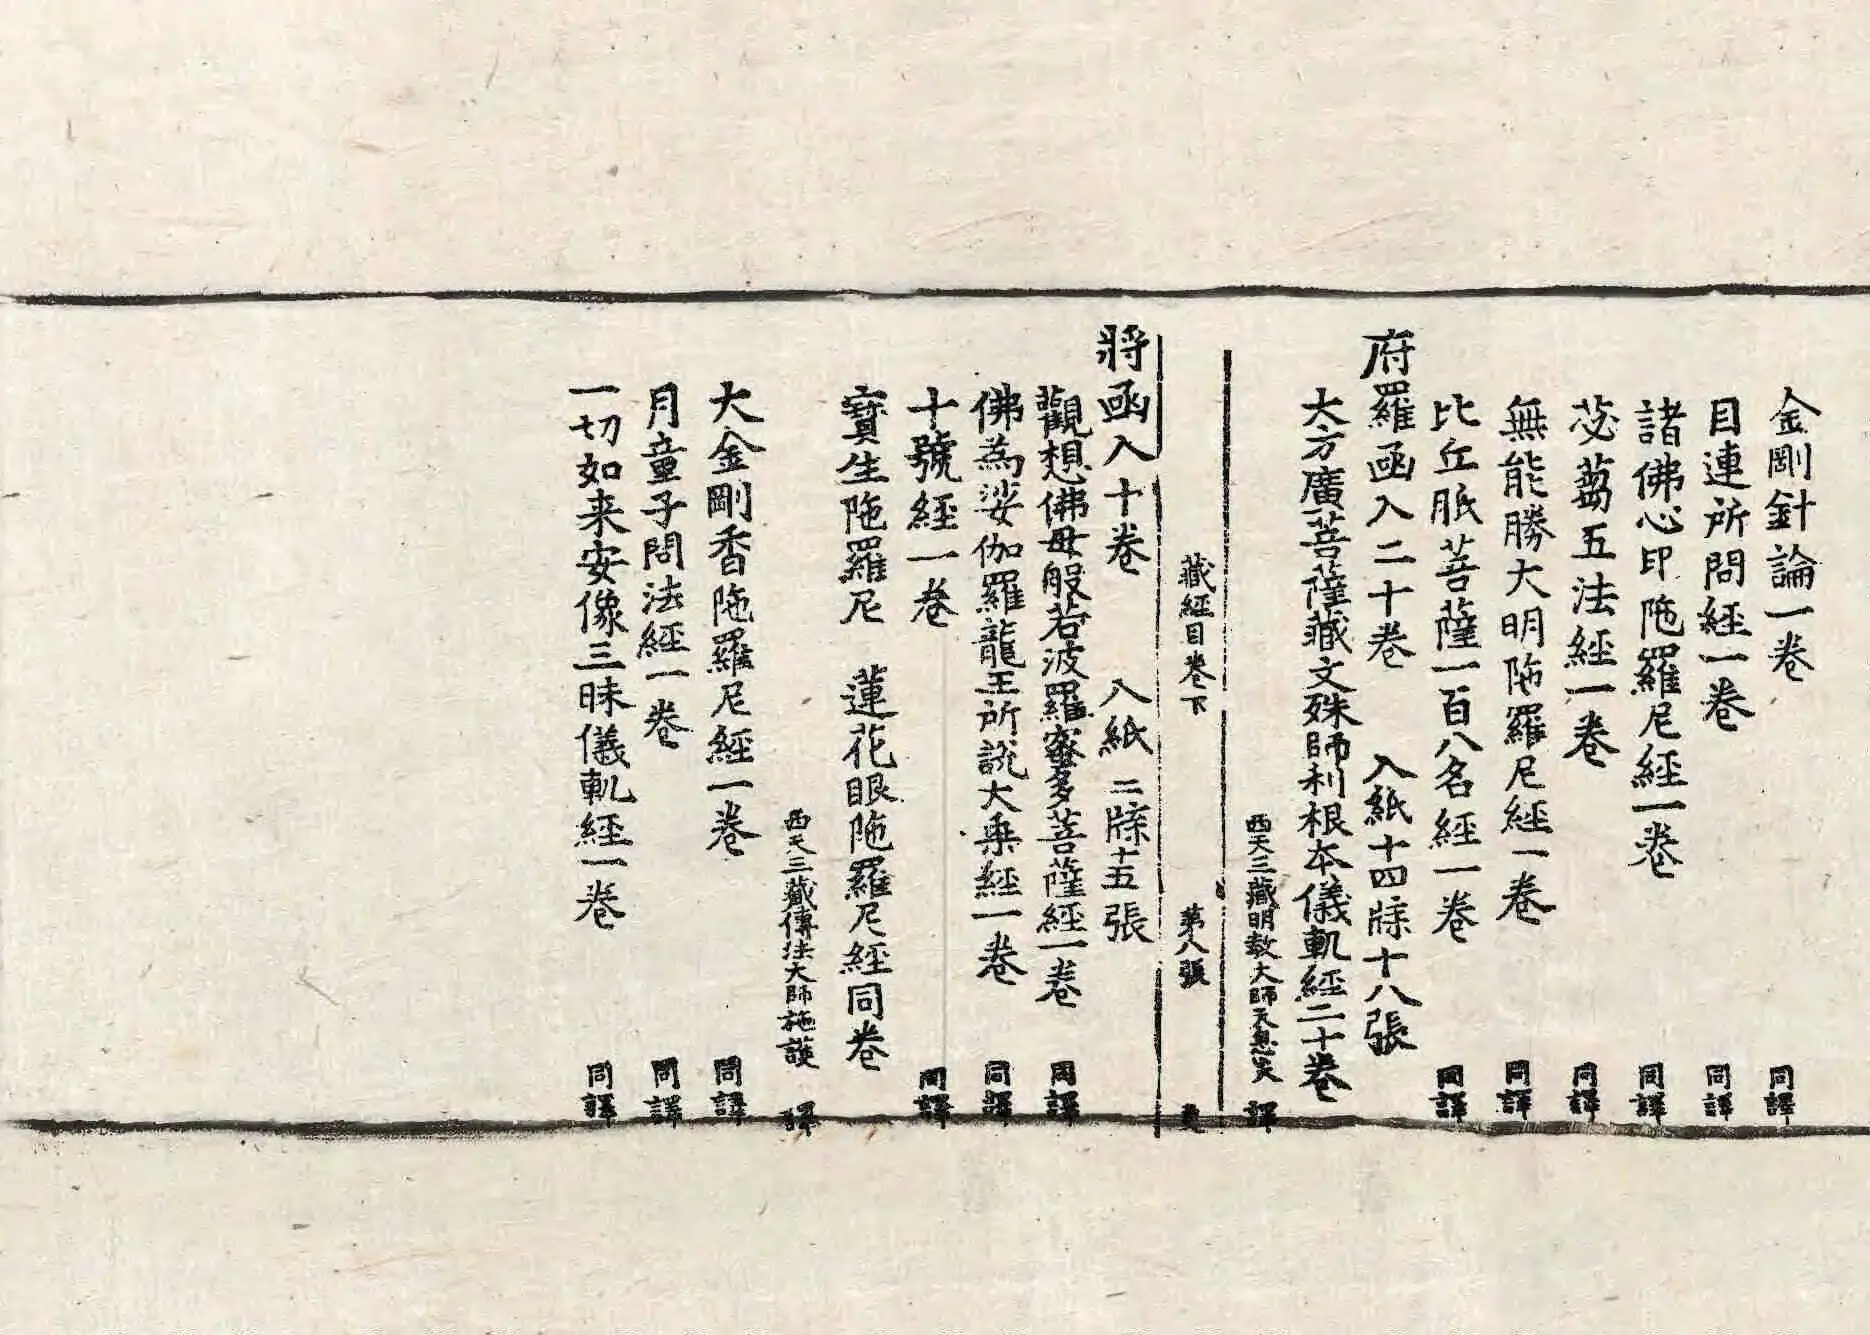 金剛針論一卷 同譯
目連所問經一卷 同譯
諸佛心印陁羅尼經一卷 同譯
苾蒭五法經一卷 同譯
無能勝大明陁羅尼經一卷 同譯
比丘眂菩薩一百八名經一卷 同譯
府羅函入二十卷 入紙十四牒十八張
大方廣菩薩藏文殊師利根本儀軌經二十卷
西天三藏明教大師天息災 譯
藏經目卷下 第八張
將函入十卷 入紙二牒十五張
觀想佛母般若波羅蜜多菩薩經一卷 同譯
佛為娑伽羅龍王所說大乘經一卷 同譯
十號經一卷 同譯
寶生陁羅尼 蓮花眼陁羅尼經同卷
西天三藏傳法大師施護 譯
大金剛香陁羅尼經一卷 同譯
月童子問法經一卷 同譯
一切如来安像三昧儀軌經一卷 同譯